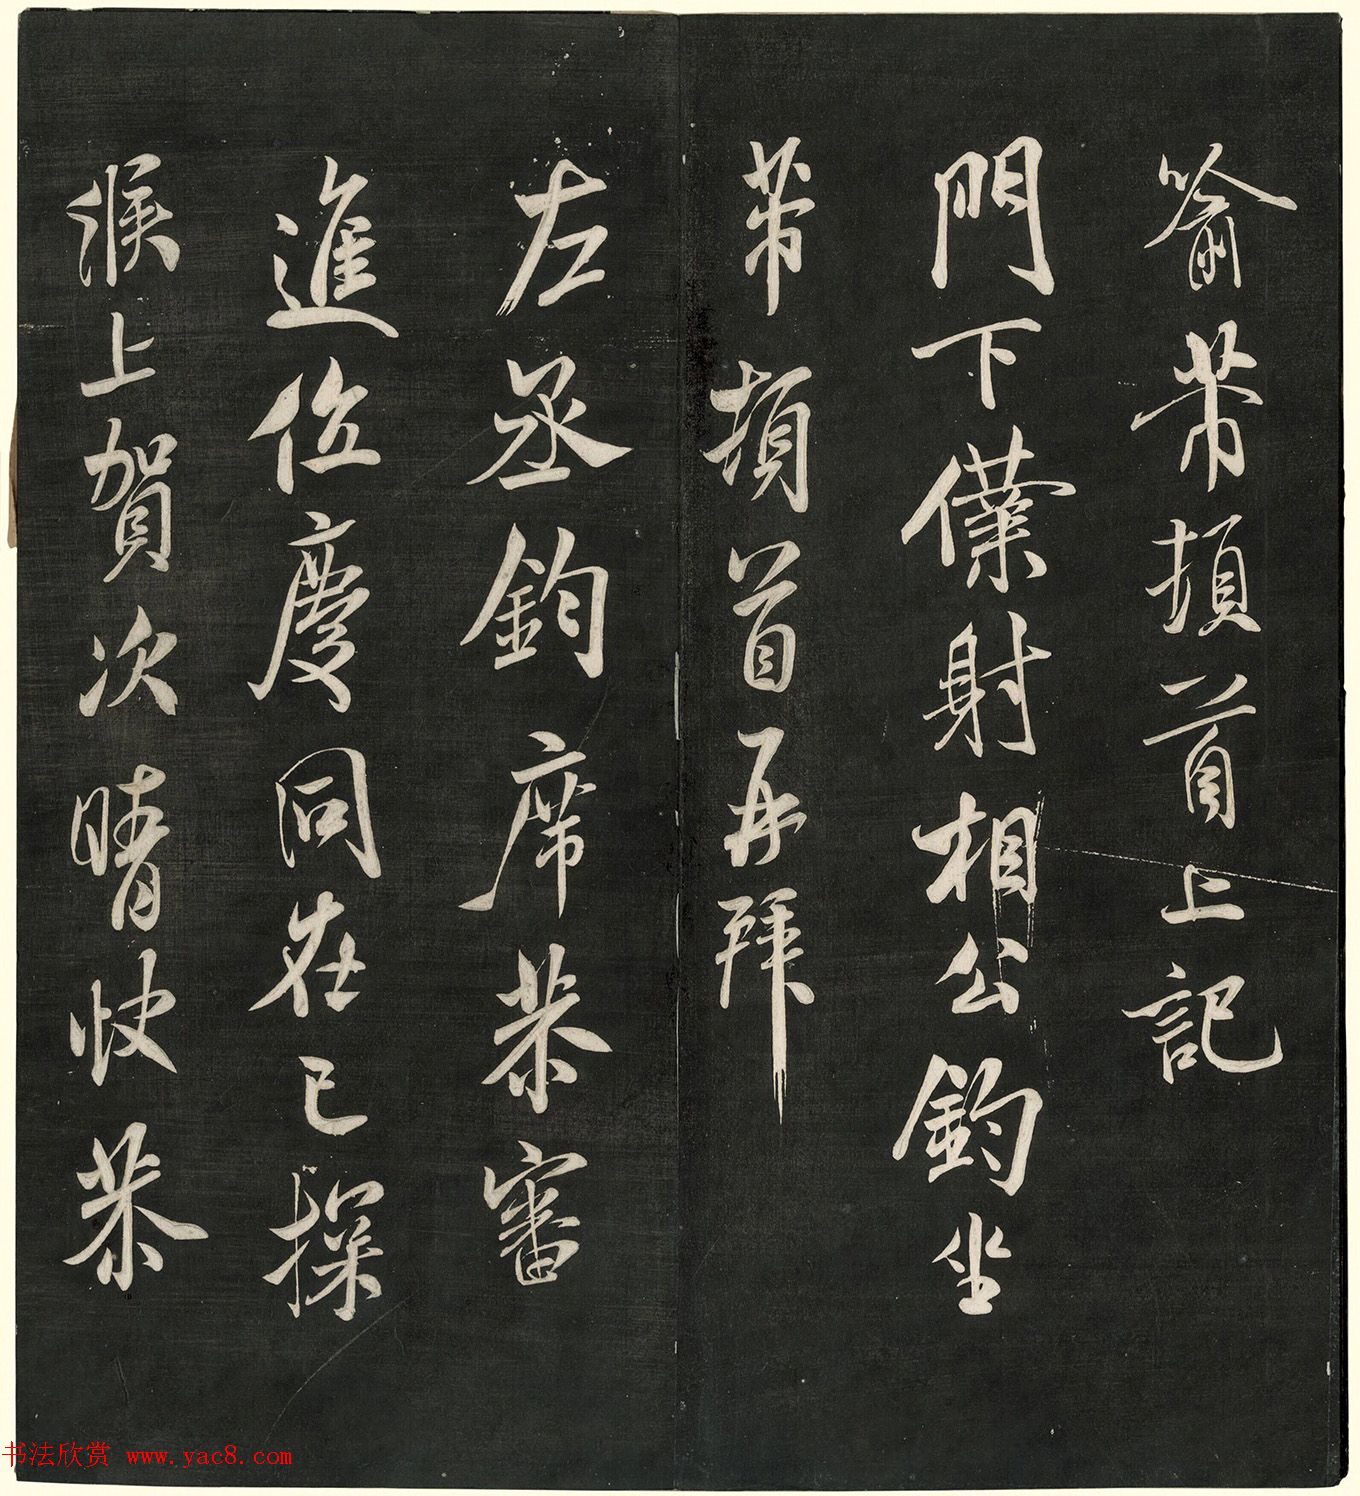 喻芾頓首上記
門下僕射相公鈞坐
芾頓首再拜
左丞鈞席恭審
進位慶同在已操
候上賀次晴快恭
书法欣赏 www.yac8.com